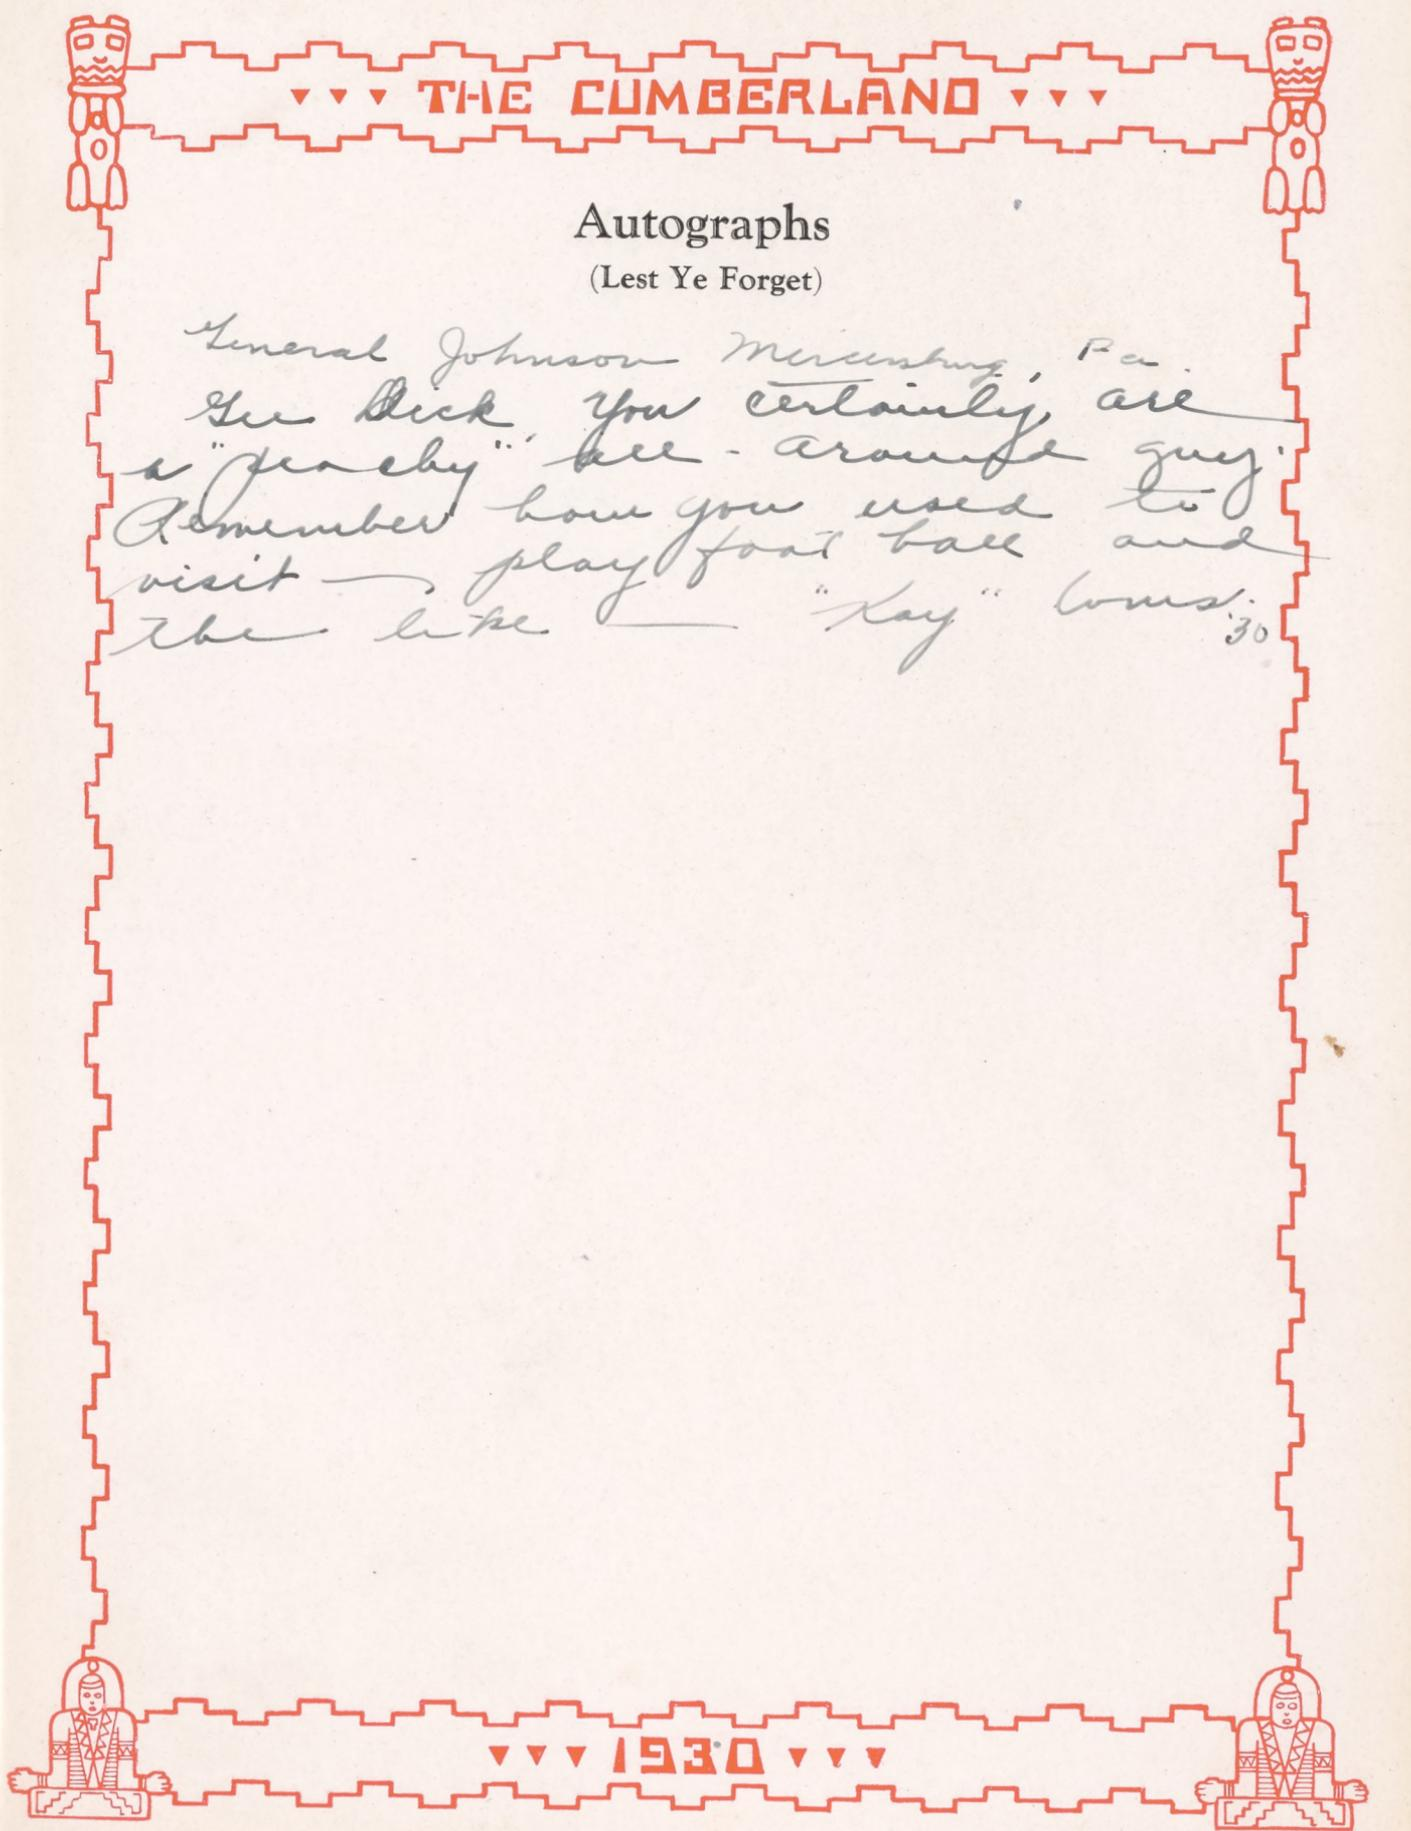 THE CUMBERLAND
Autographs
(Lest Ye Forget)
General Johnson Mercersburg, Pa.
Gee Dick, you certainly are
a "peachy" all-around guy.
Remember how you used to
visit — , play foot ball and
the like — "Kay"
'30
1930